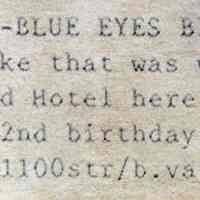 -BLUE EYES B
ke that was
d Hotel here
2nd birthday
1100str/b.va